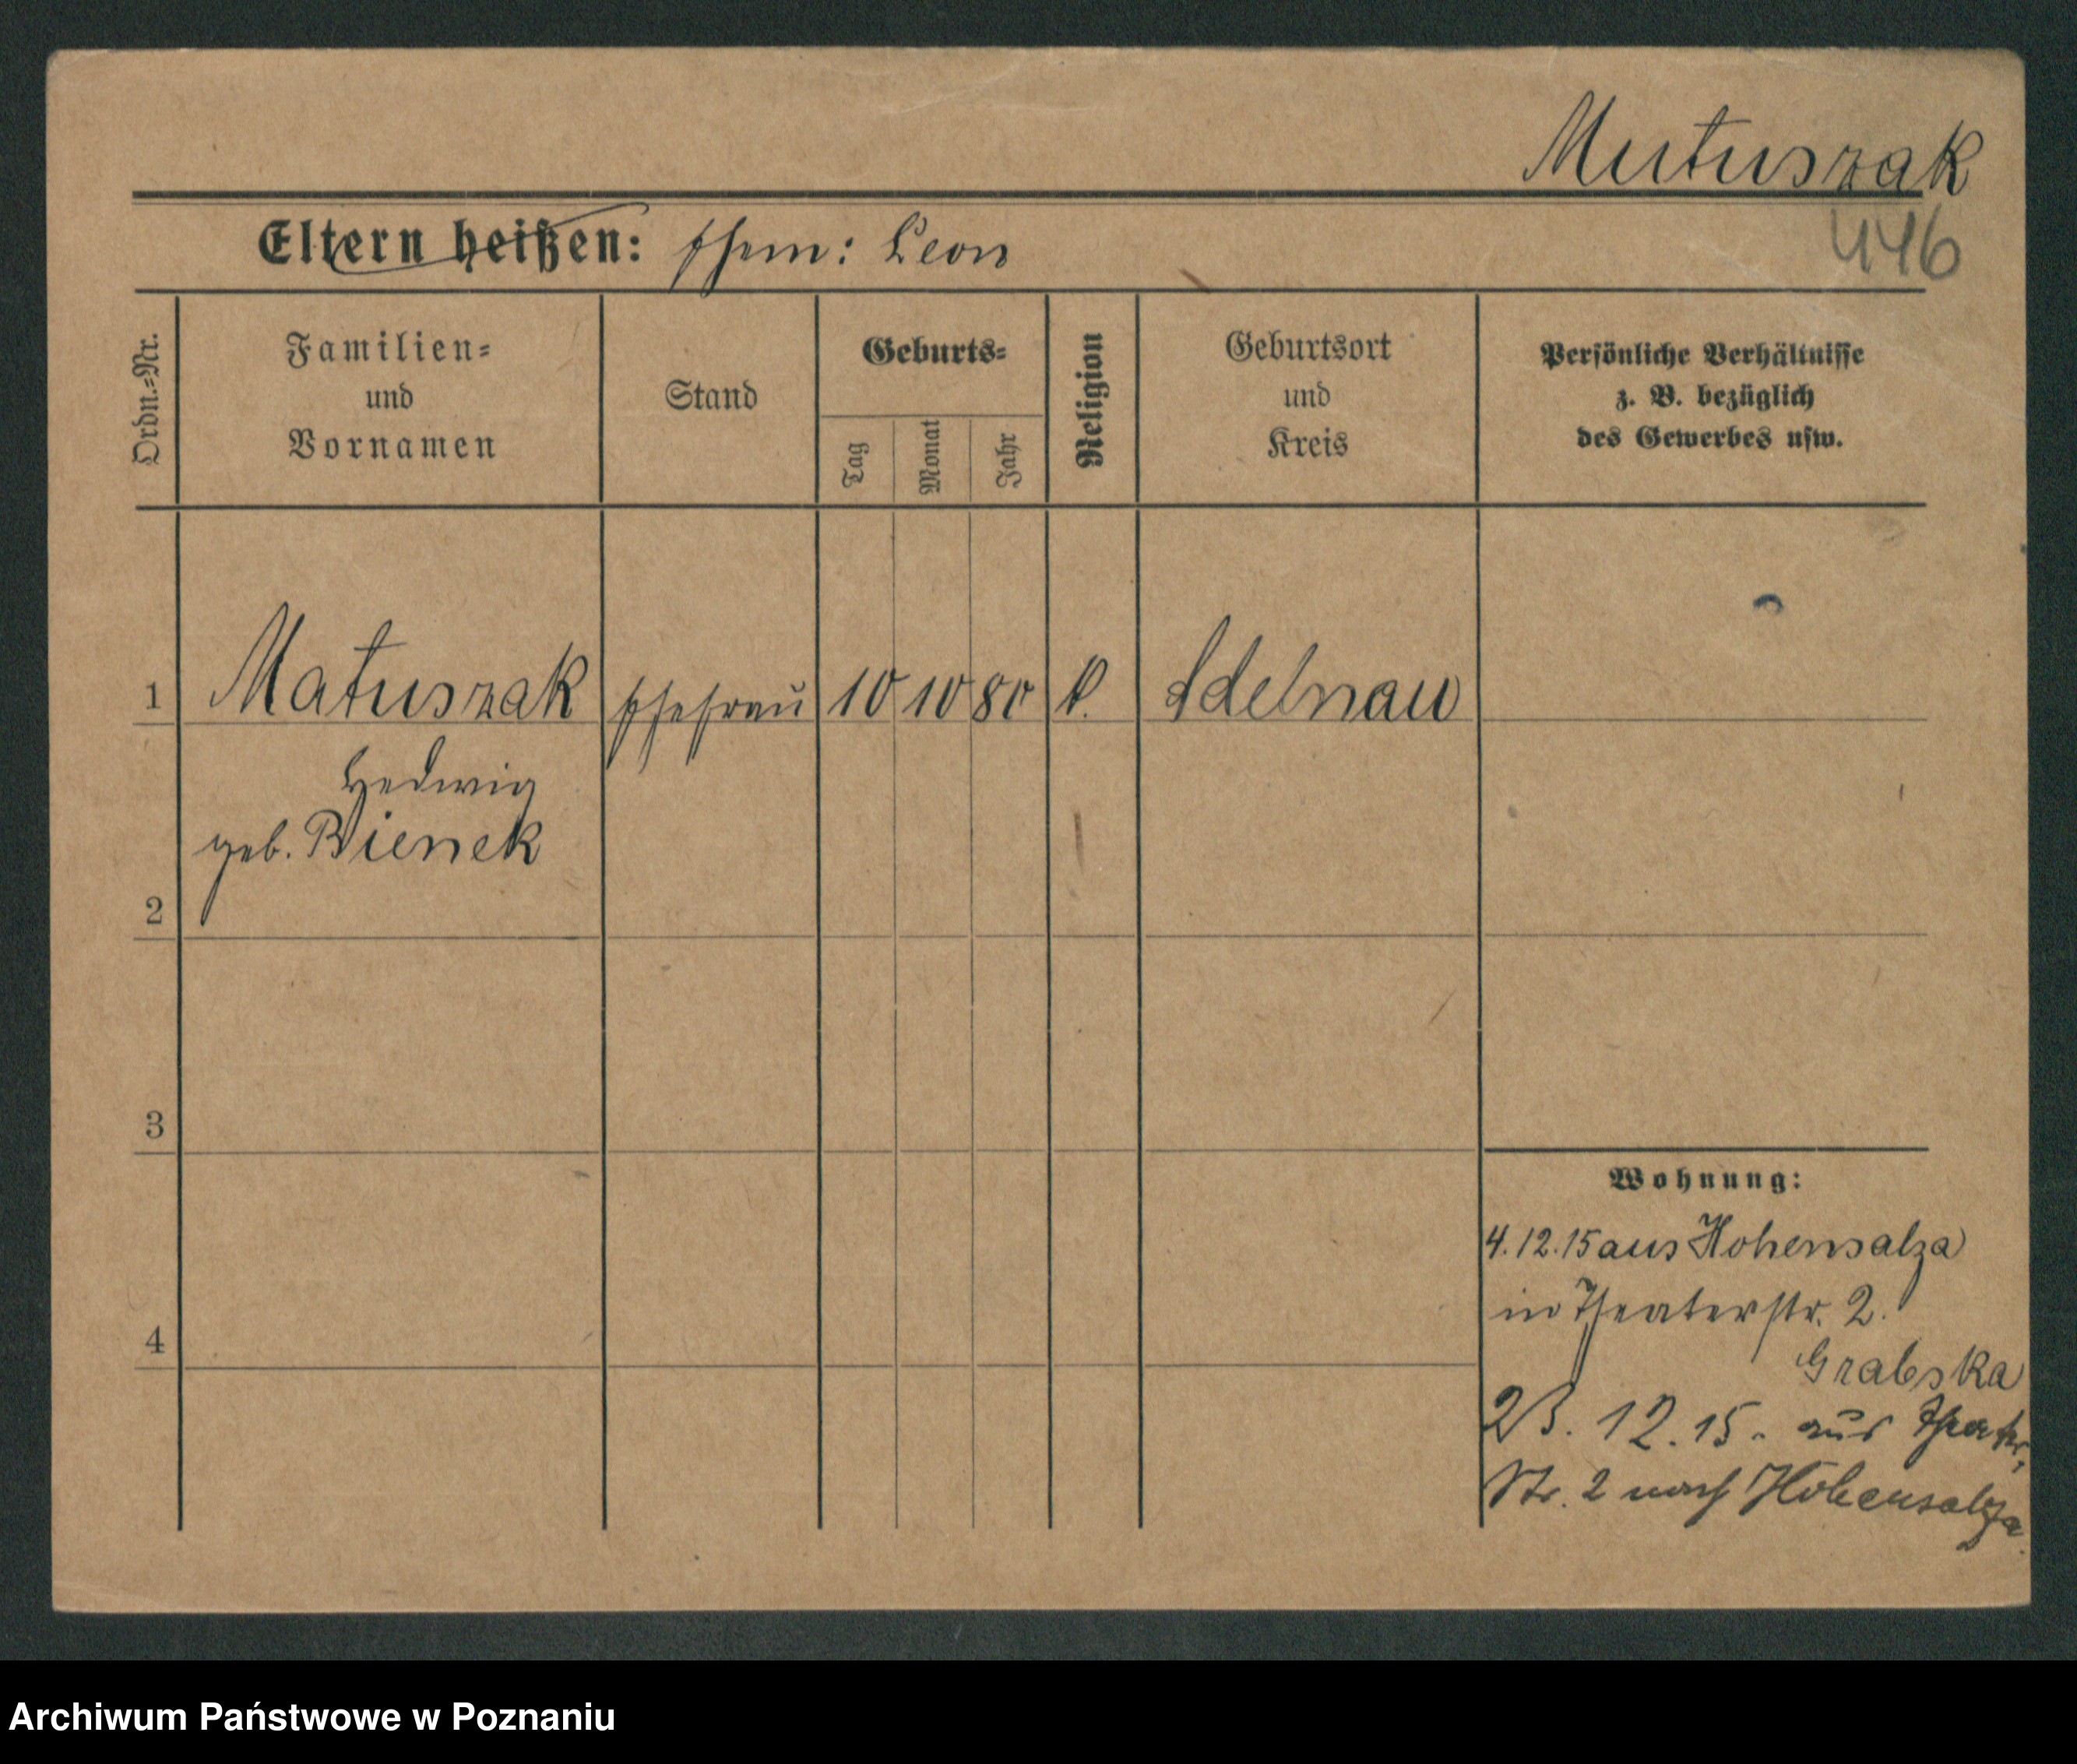 Matuszak
446
Eltern heißen: Ehem: Leon
Ordn.-Nr.
Familien-
und
Vornamen
Stand
Geburts-
Tag
Monat
Jahr
Religion
Geburtsort
und
Kreis
Persönliche Verhältnisse
z. B. bezüglich
des Gewerbes usw.
1
Matuszak
Ehefrau
10
10
80
k.
Adelnau
Hedwig
geb. Bienek
2
3
4
Wohnung:
4.12.15 aus Hohensalza
in Theaterstr. 2.
Grabska
23. 12. 15. aus Theater,
Str. 2 nach Hohensalza.
Archiwum Państwowe w Poznaniu